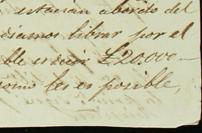 estaran abordo del
diamos librar por el
ble es decir £20000—
como les es posible,